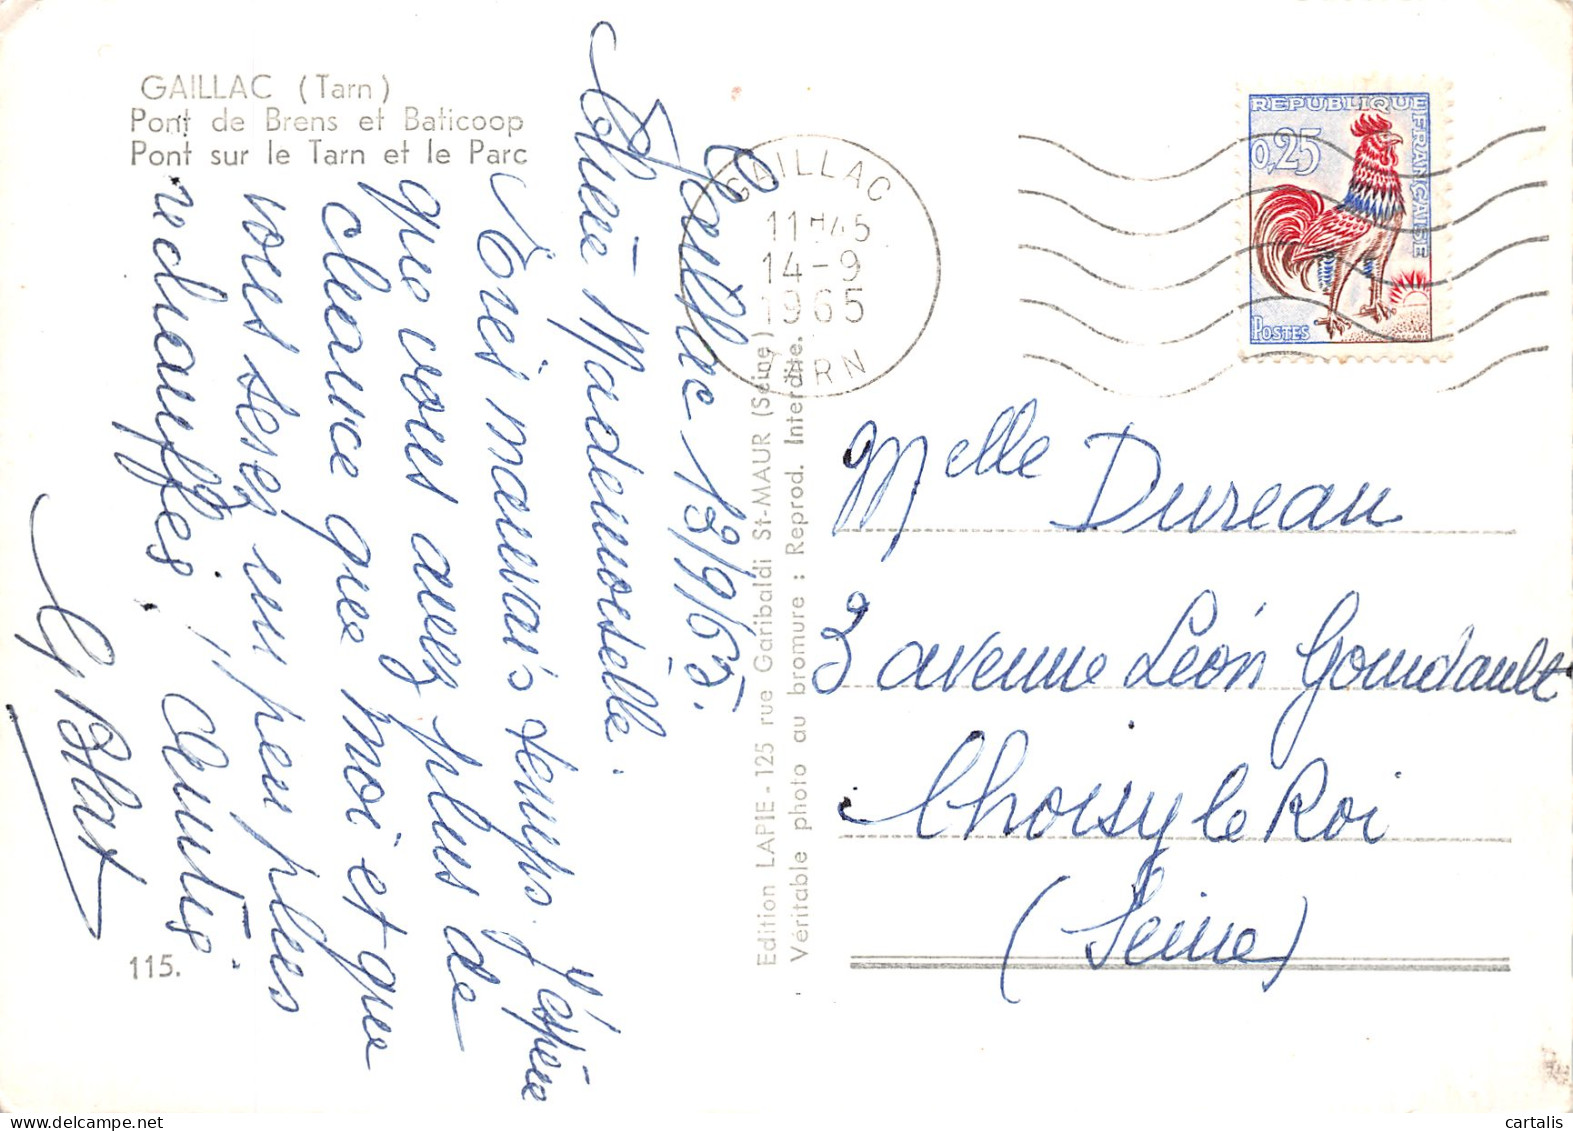 GAILLAC (Tarn)
Pont de Brens et Baticoop
Pont sur le Tarn et le Parc
Gaillac 13/9/65.
Chère Mademoiselle.
Très mauvais temps. J'espère
que vous avez plus de
chance que moi et que
vous serez un peu plus
réchauffés. Amitiés.
G. Blat
115.
Edition LAPIE - 125 rue Garibaldi St-MAUR (Seine)
Véritable photo au bromure : Reprod. Interdite.
GAILLAC
11H45
14-9
1965
TARN
REPUBLIQUE FRANÇAISE
0,25
POSTES
DECARIS
Melle Dureau
3 avenue Léon Gourdault
Choisy le Roi
(Seine)
cartalis